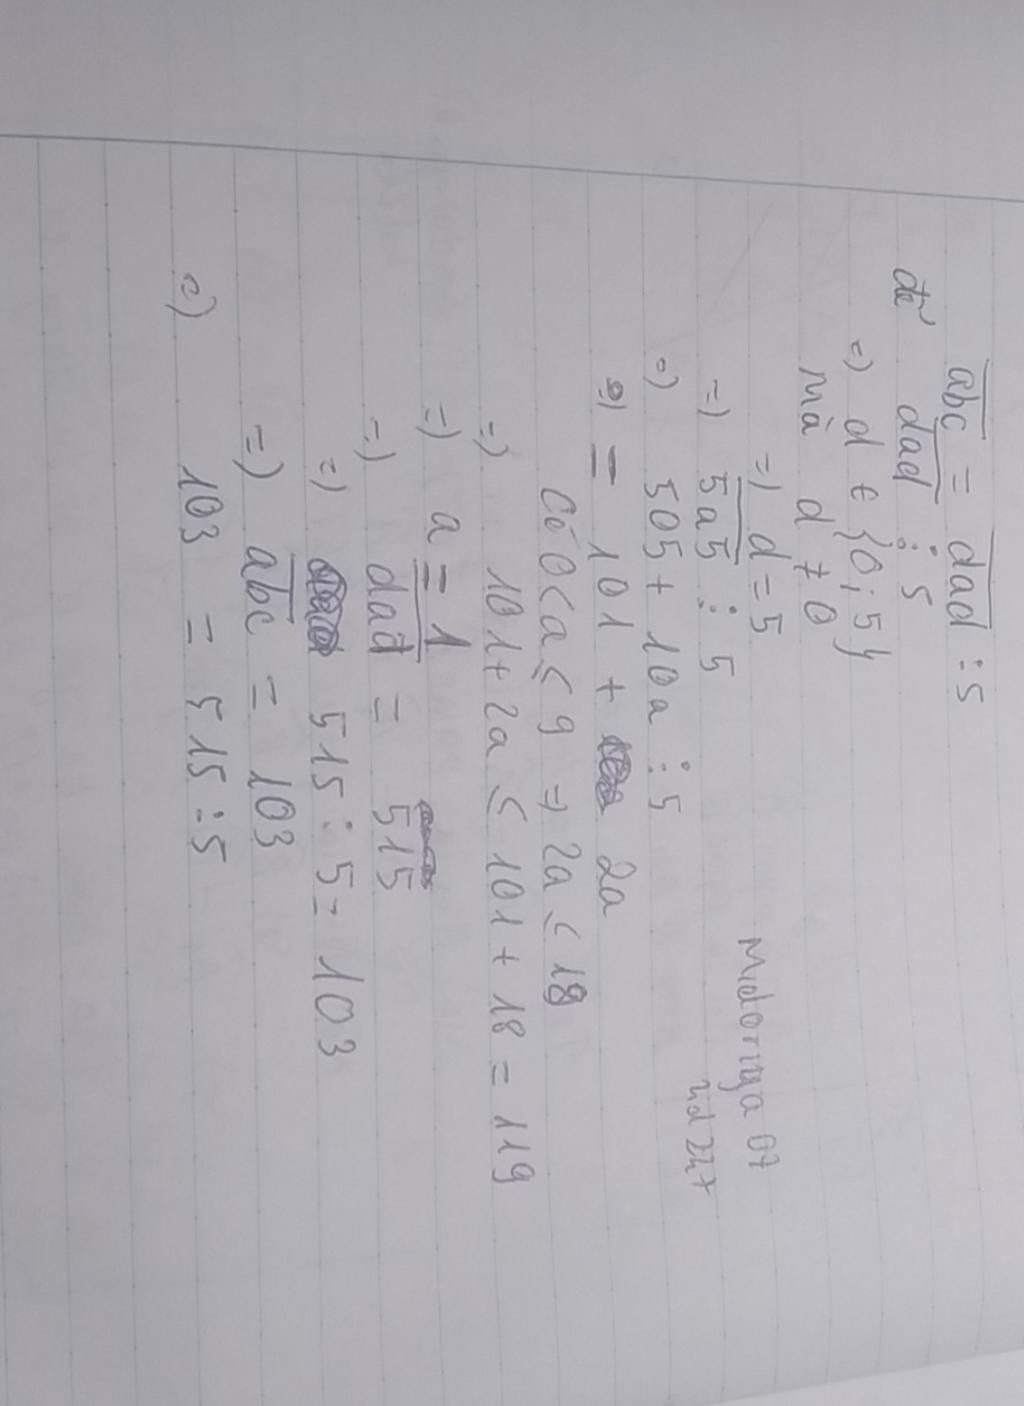 abc = dad : 5
để dad ⋮ 5
=) d ∈ {0; 5}
mà d ≠ 0
=) d = 5
=) 5a5 ⋮ 5
=) 505 + 10a ⋮ 5
= 101 + 2a
Có 0 < a ≤ 9 => 2a ≤ 18
=) 101 + 2a ≤ 101 + 18 = 119
=) a = 1
=) dad = 515
=) 515 : 5 = 103
=) abc = 103
c) 103 = 515 : 5
Midoriya 07